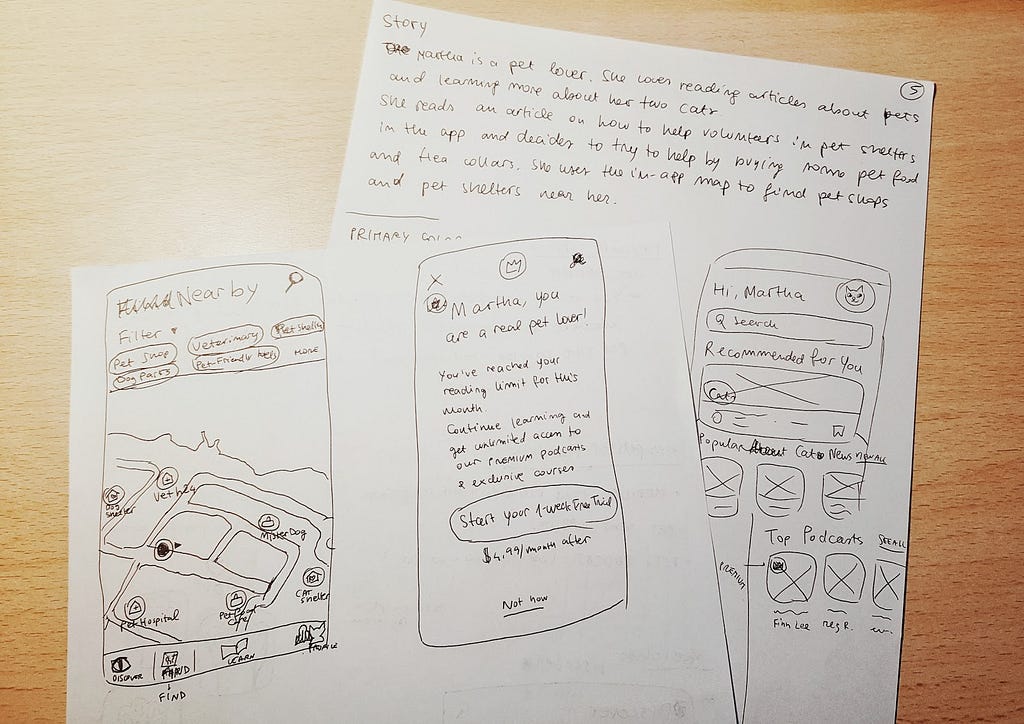 Story
Martha is a pet lover. She loves reading articles about pets
and learning more about her two cats.
She reads an article on how to help volunteers in pet shelters
in the app and decides to try to help by buying some pet food
and flea collars. She uses the in-app map to find pet shops
and pet shelters near her.
5
PRIMARY
Nearby
Filter
Pet Shop
Veterinary
Pet Shelter
Dog Parks
Pet-Friendly
MORE
Vet h24
Dog Shelter
MisterDog
CAT Shelter
Pet Hospital
Cafe
DISCOVER
FIND
LEARN
PROFILE
X
Martha, you
are a real pet lover!
You've reached your
reading limit for this
month.
Continue learning and
get unlimited access to
our PREMIUM podcasts
& exclusive courses
Start your 1-week Free Trial
$4.99/month after
Not now
Hi, Martha
Search
Recommended for You
Cats
Popular Cats News
Top Podcasts SEE ALL
PREMIUM
Finn Lee
Meg R.